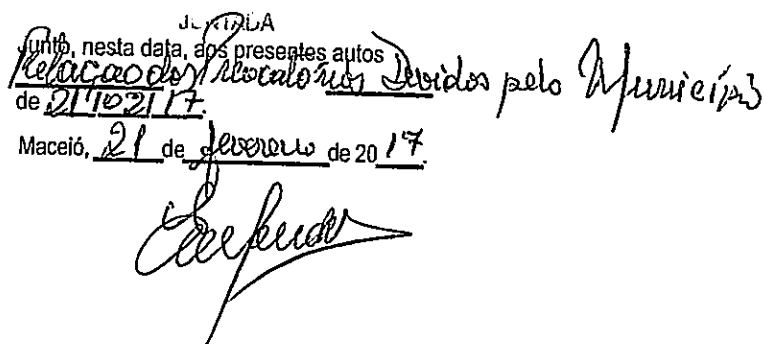 JUNTADA
Junto, nesta data, aos presentes autos
Relação dos Precatórios Devidos pelo Município
de 21/02/17.
Maceió, 21 de fevereiro de 2017.